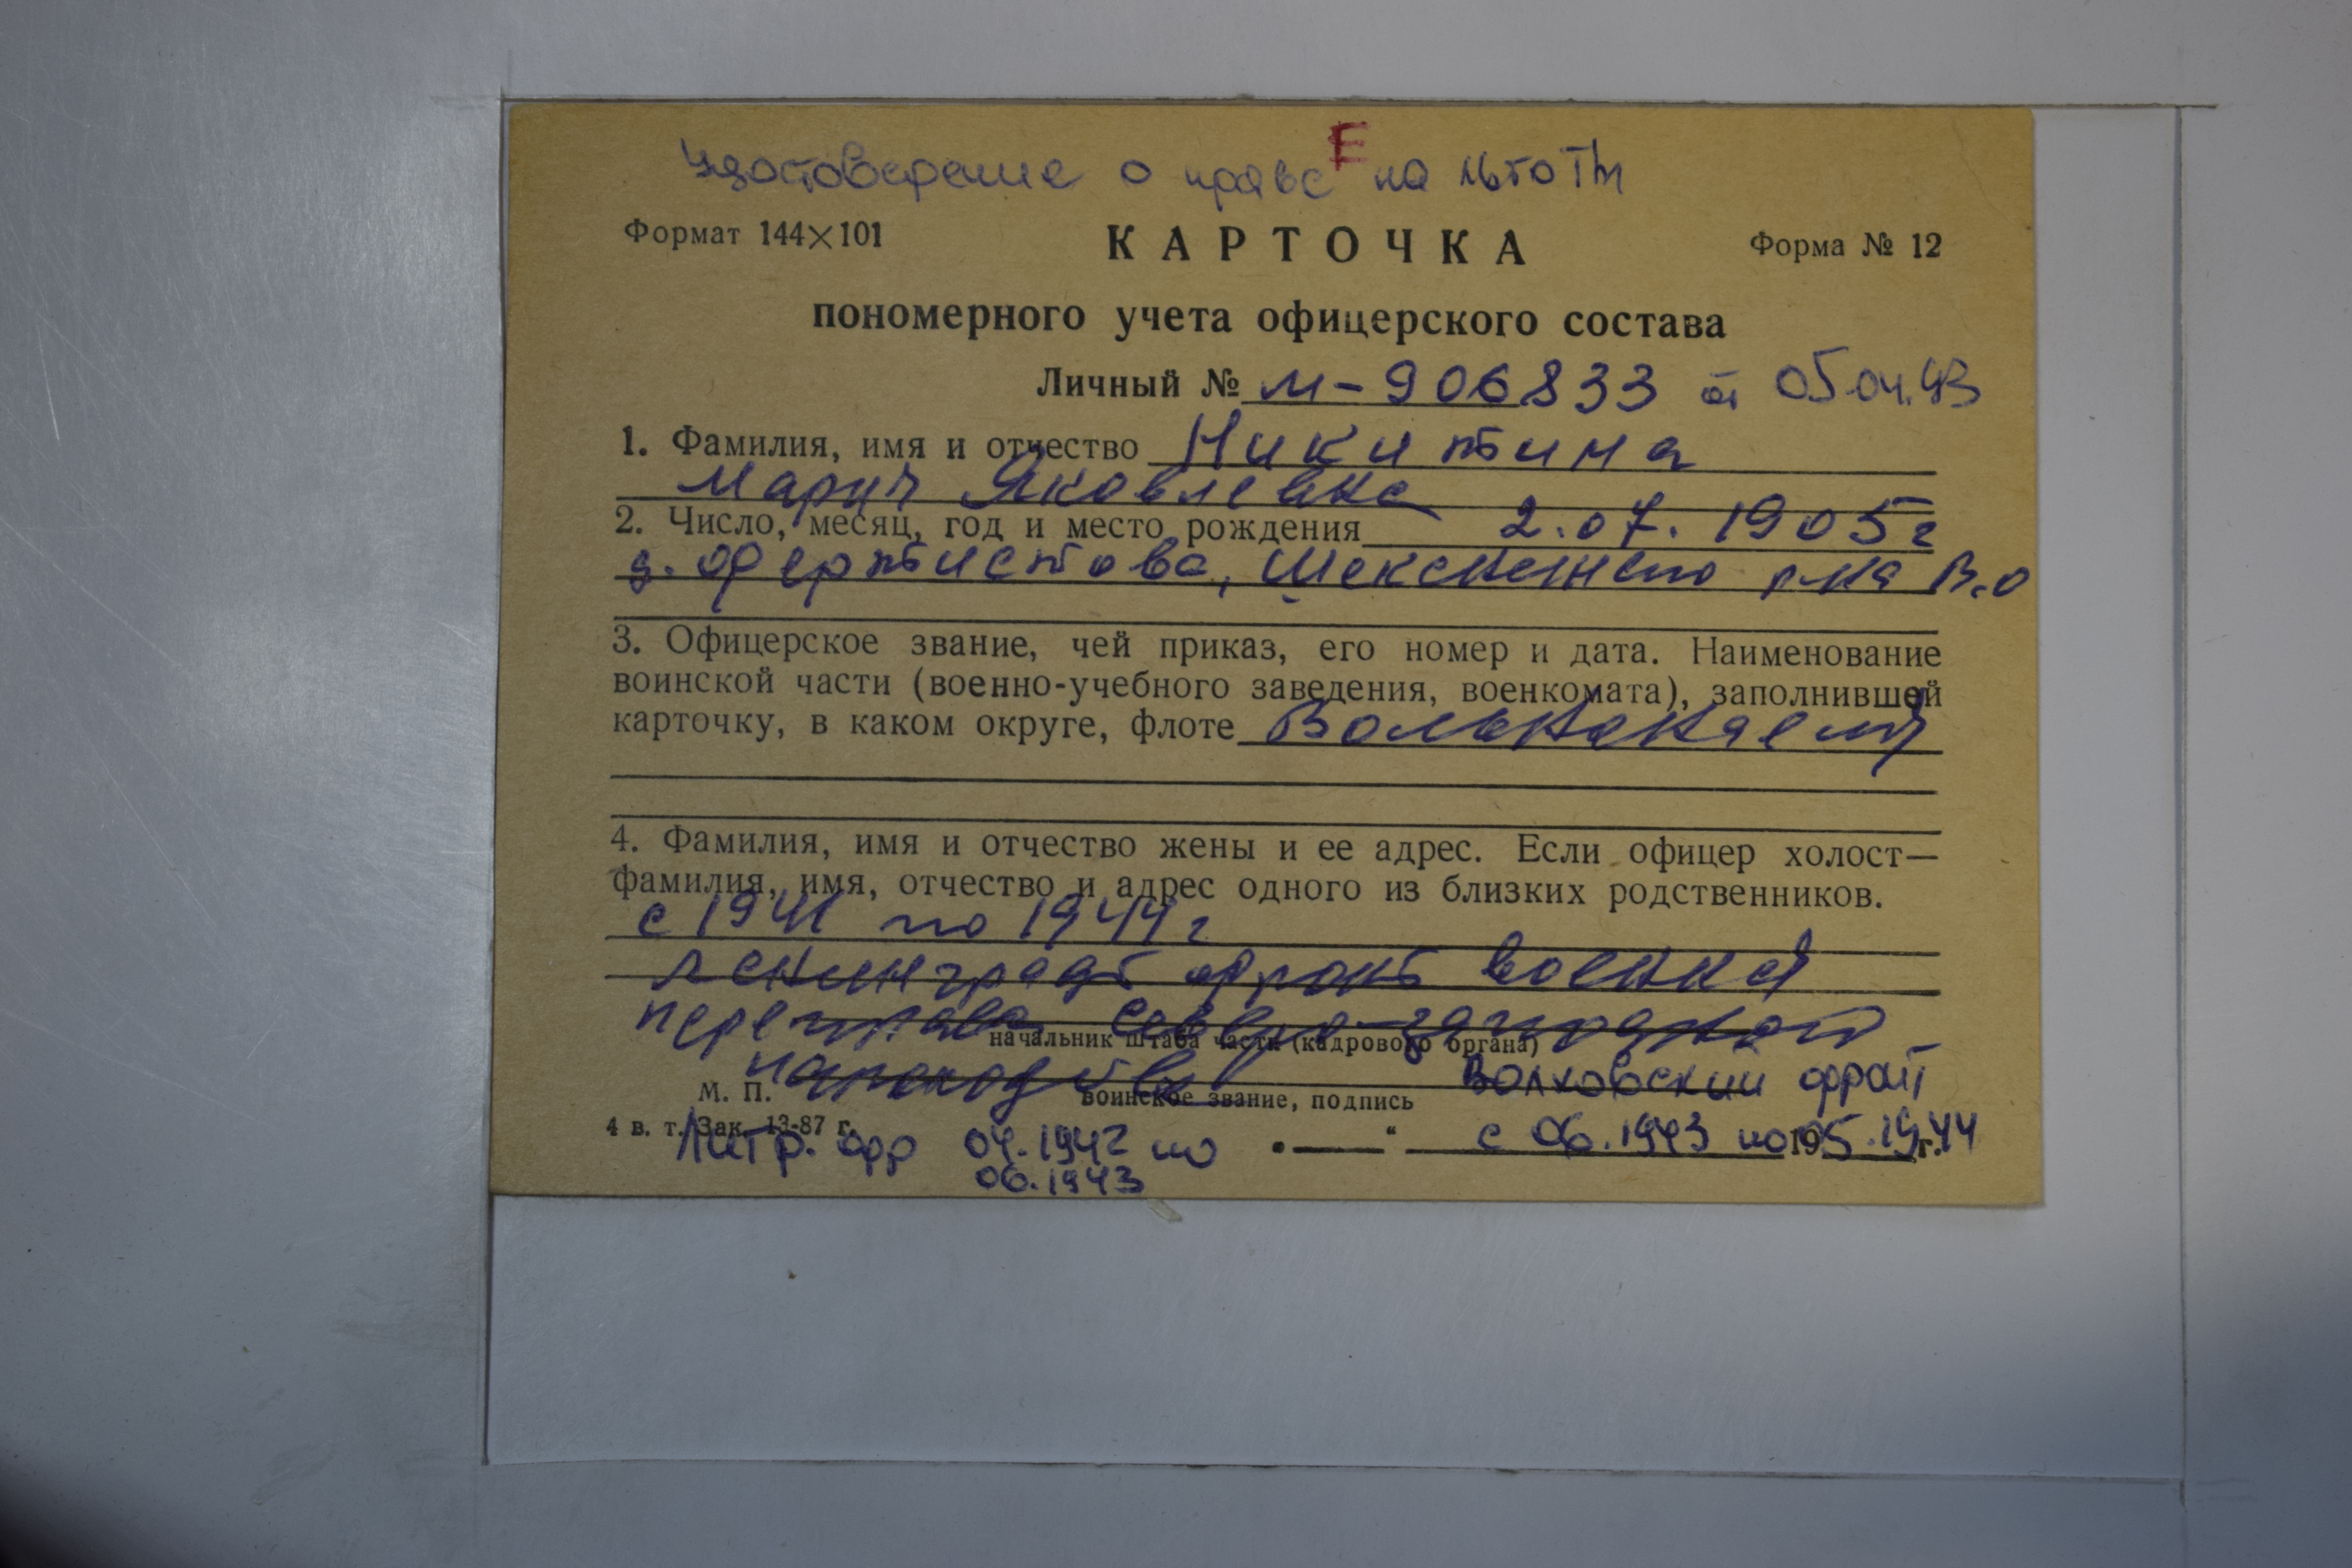 Е
Удостоверение о праве на льготы
Формат 144×101
КАРТОЧКА
Форма № 12
пономерного учета офицерского состава
Личный № М-906833 от 05.04.93
1. Фамилия, имя и отчество Никитина
Мария Яковлевна
2. Число, месяц, год и место рождения 2.07.1905г
д. Шекснинского р-на В.о
3. Офицерское звание, чей приказ, его номер и дата. Наименование
воинской части (военно-учебного заведения, военкомата), заполнившей
карточку, в каком округе, флоте Вольнонаемн
4. Фамилия, имя и отчество жены и ее адрес. Если офицер холост—
фамилия, имя, отчество и адрес одного из близких родственников.
с 1941 по 1944 г
Ленинград фронт военная
переправа Северо-западного
начальник штаба части (кадрового органа)
пароходства Волховский фронт
М. П. воинское звание, подпись
4 в. т. Зак. 13-87 г.
фр 04.1942 по „—“ с 06.1943 по 05.1944
19 г.
06.1943